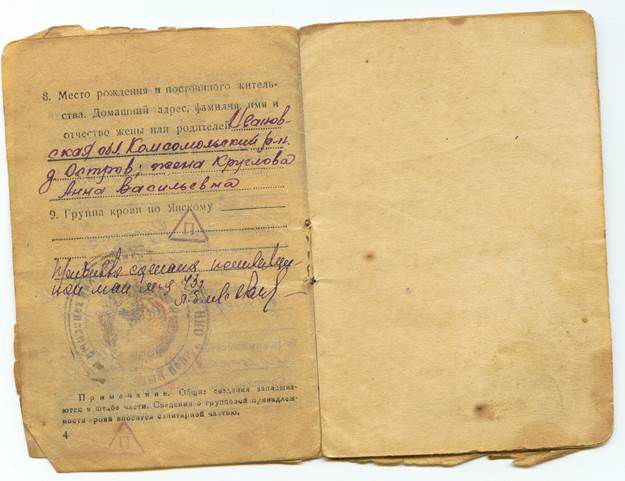 8. Место рождения и постоянного житель-
ства. Домашний адрес, фамилия, имя и
отчество жены или родителей Иванов-
ская обл. Комсомольский р-н
д Остров; жена Круглова
Анна Васильевна
9. Группа крови по Янскому
П
Прививка сделана
май м-ц 43 г
Примечание. Общие сведения записыва-
ются в штабе части. Сведения о групповой принадлеж-
ности крови вносятся санитарной частью.
4
П